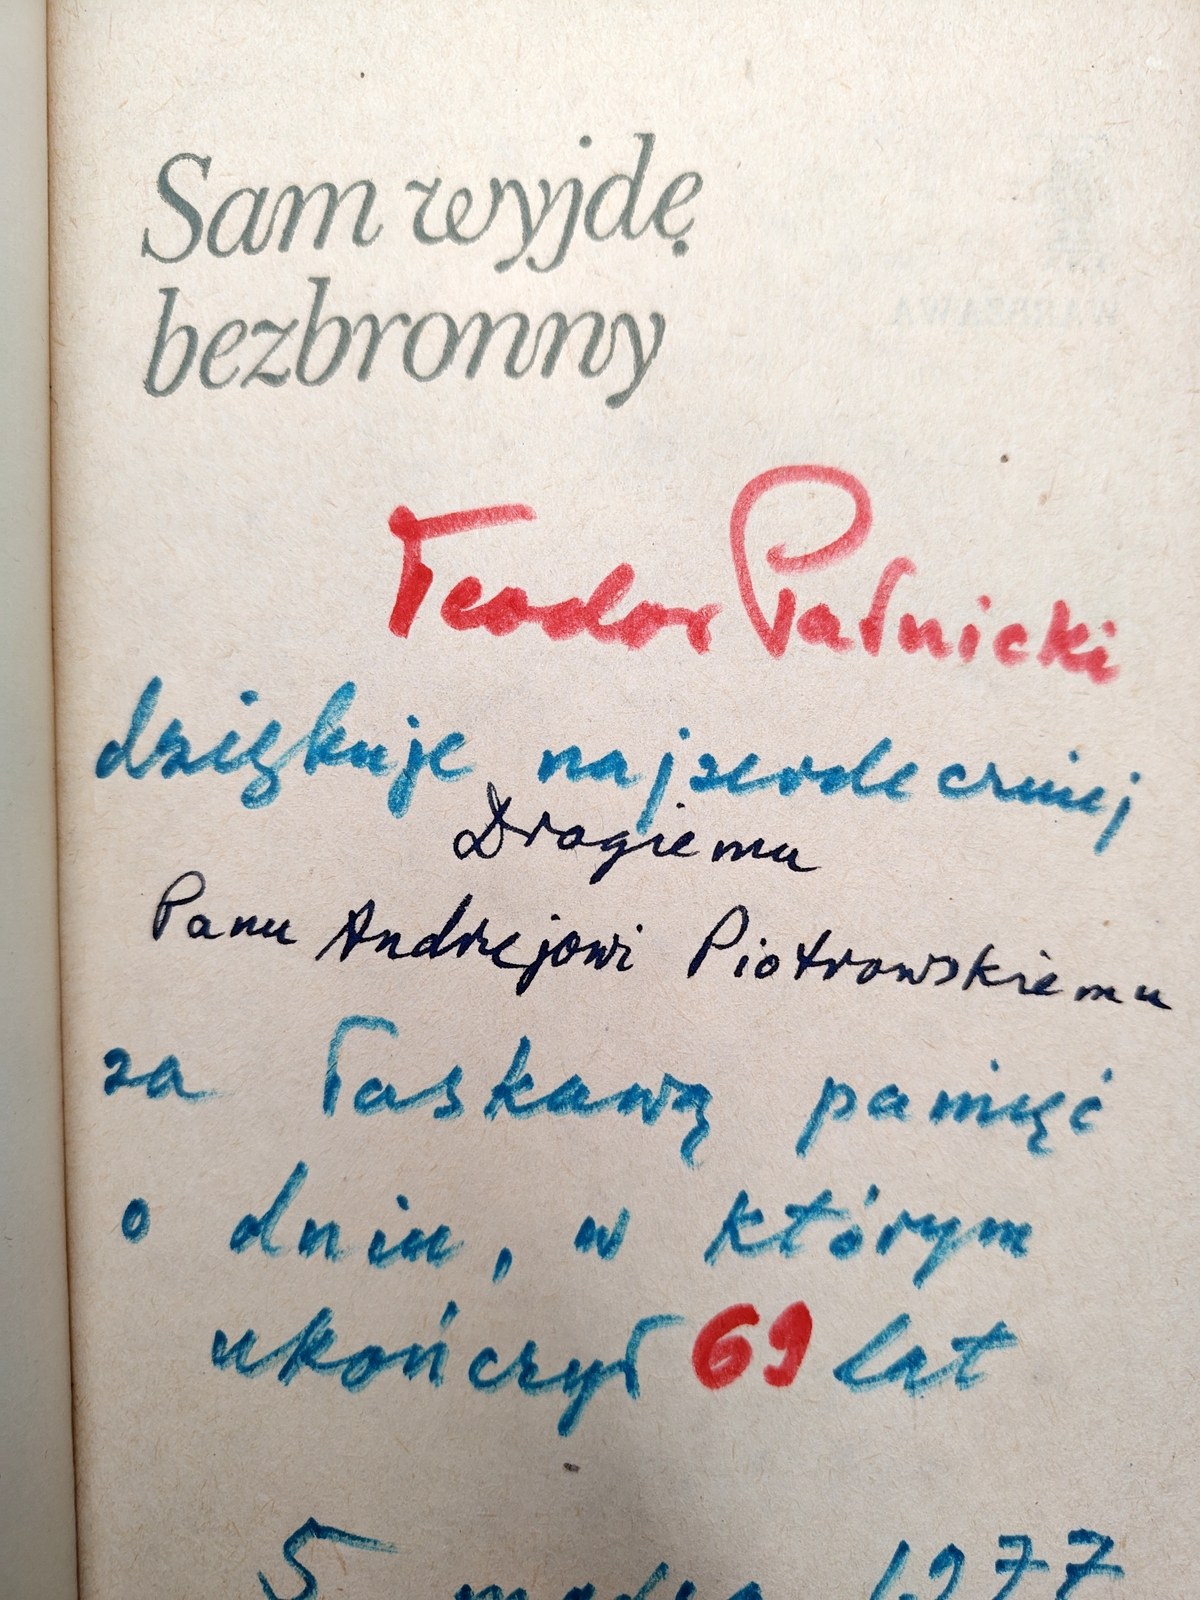 Sam wyjdę
bezbronny
Teodor Parnicki
dziękuje najserdeczniej
Drogiemu
Panu Andrzejowi Piotrowskiemu
za łaskawą pamięć
o dniu, w którym
ukończył 69 lat
5 marca 1977